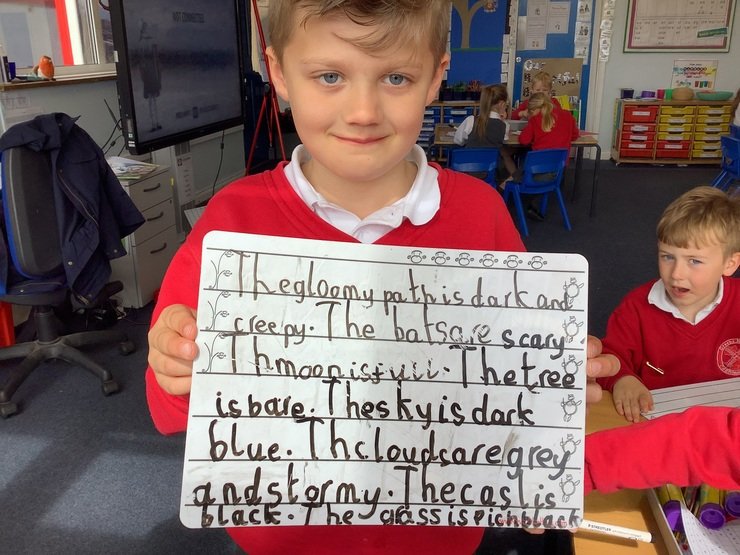 NOT CONNECTED
The gloomy path is dark and
creepy. The bats are scary.
Th moon is full. The tree
is bare. The sky is dark
blue. Th clouds are grey
and stormy. The cas is
black. The grass is pich black
STAEDTLER